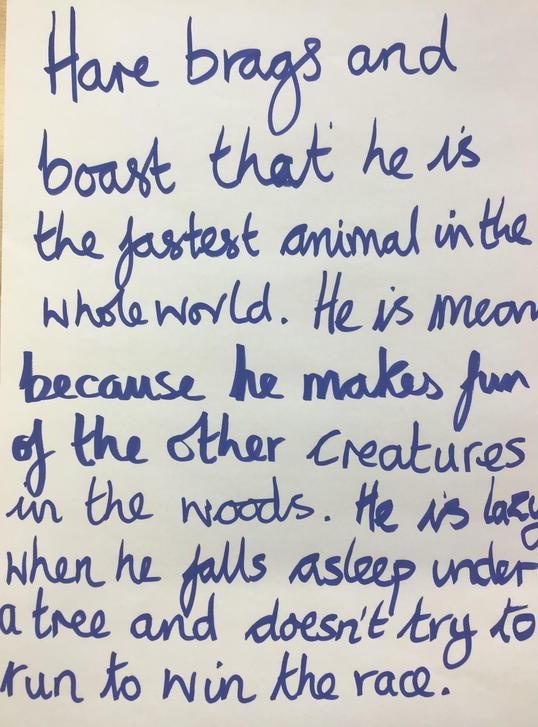 Hare brags and
boast that he is
the fastest animal in the
whole world. He is mean
because he makes fun
of the other creatures
in the woods. He is lazy
when he falls asleep under
a tree and doesn't try to
run to win the race.